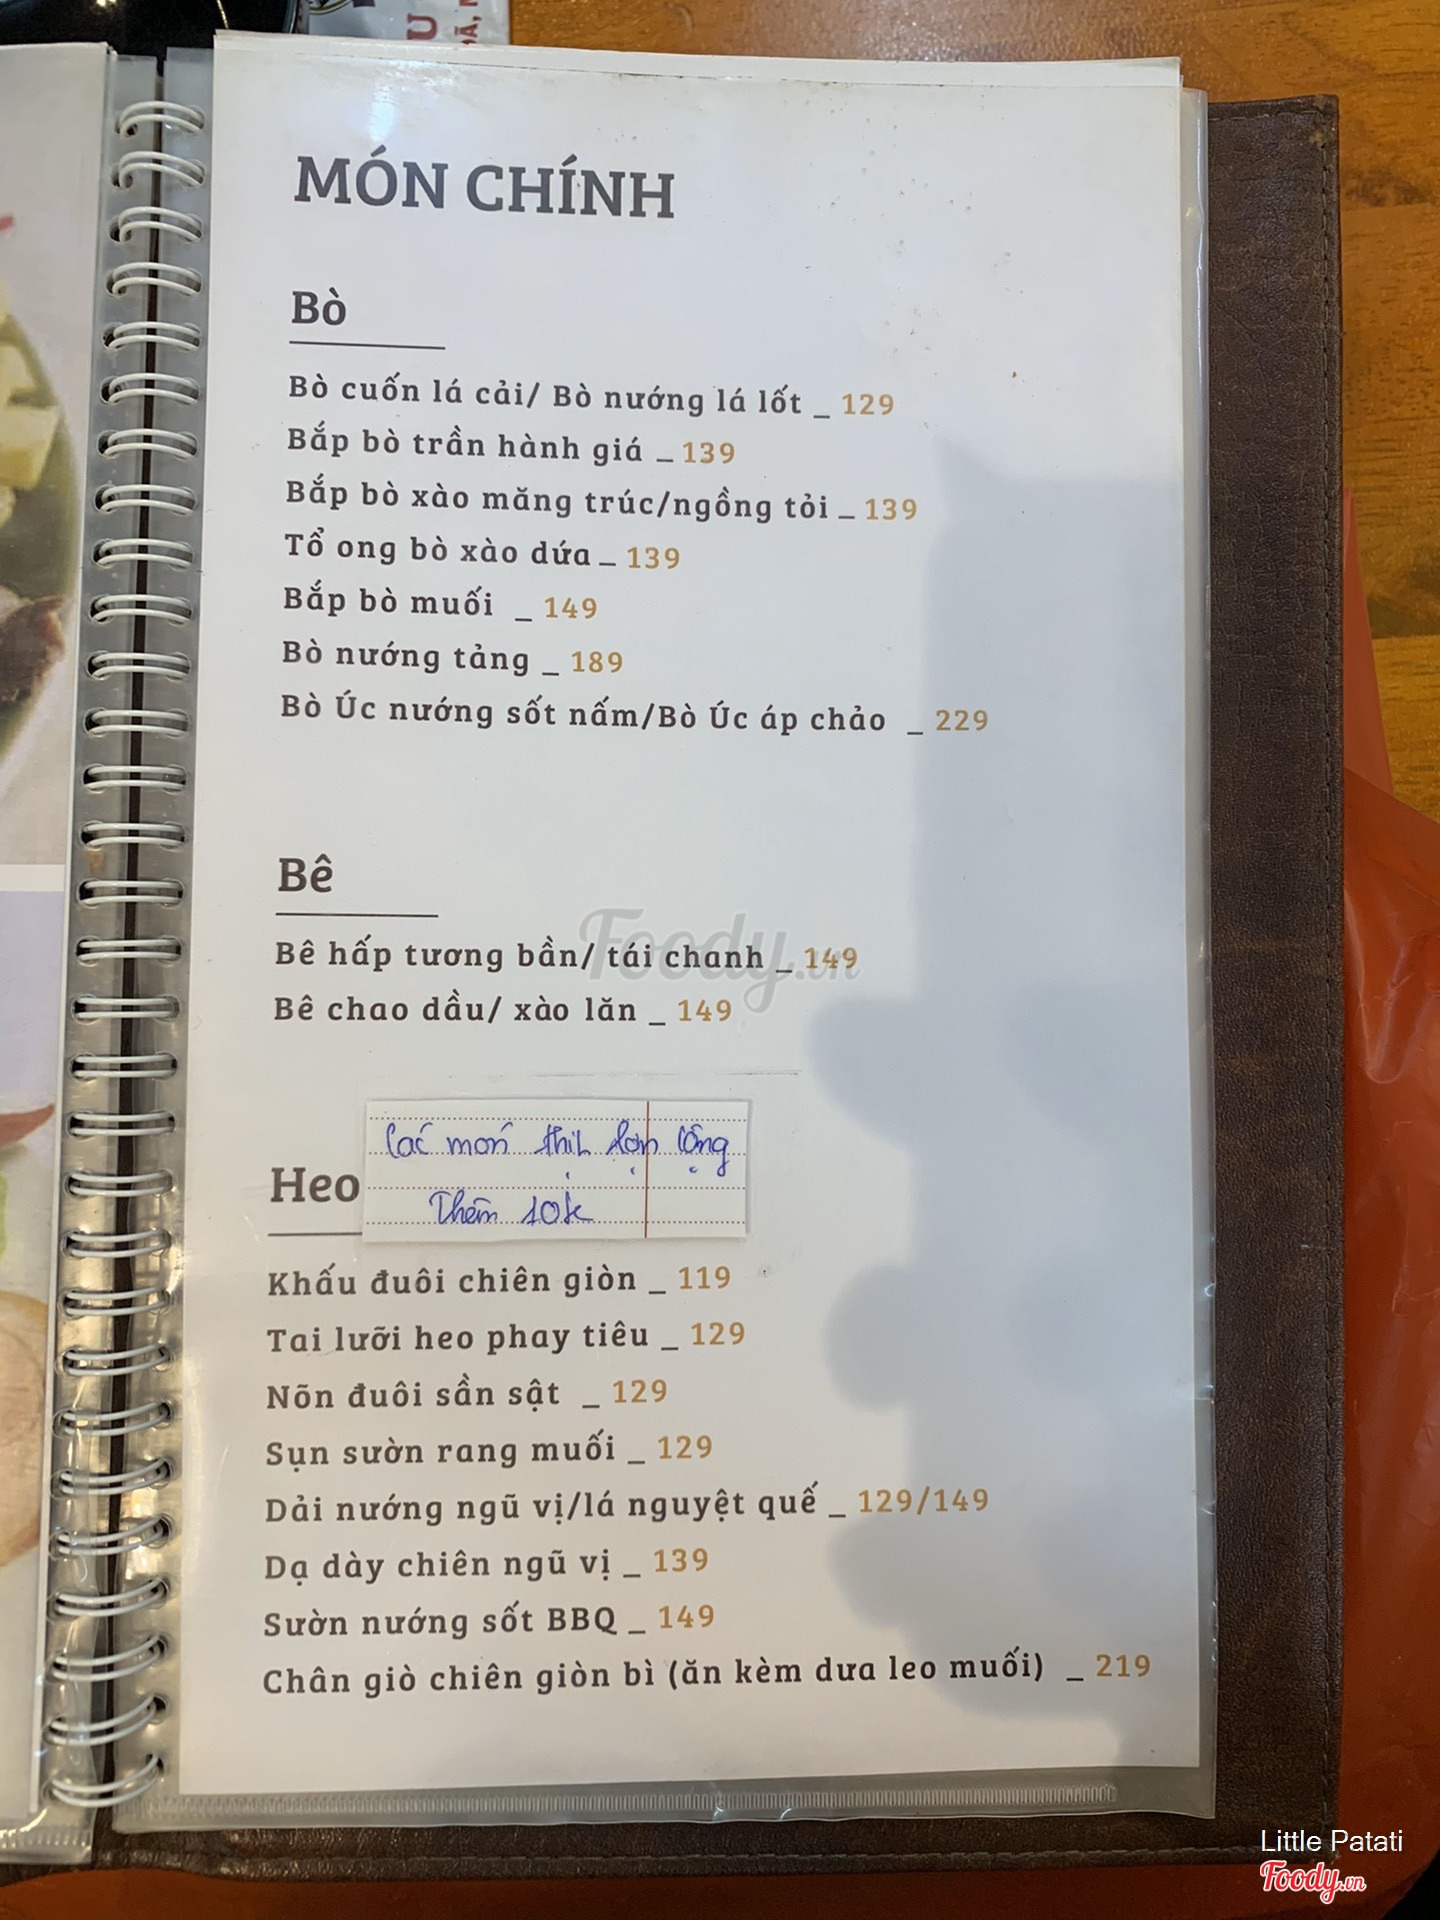 MÓN CHÍNH
Bò
Bò cuốn lá cải/ Bò nướng lá lốt _ 129
Bắp bò trần hành giá _ 139
Bắp bò xào măng trúc/ngồng tỏi _ 139
Tổ ong bò xào dứa _ 139
Bắp bò muối _ 149
Bò nướng tảng _ 189
Bò Úc nướng sốt nấm/Bò Úc áp chảo _ 229
Bê
Bê hấp tương bần/ tái chanh _ 149
Foody.vn
Bê chao dầu/ xào lăn _ 149
Các món thịt lợn cộng
Thêm 10k
Heo
Khấu đuôi chiên giòn _ 119
Tai lưỡi heo phay tiêu _ 129
Nõn đuôi sần sật _ 129
Sụn sườn rang muối _ 129
Dải nướng ngũ vị/lá nguyệt quế _ 129/149
Dạ dày chiên ngũ vị _ 139
Sườn nướng sốt BBQ _ 149
Chân giò chiên giòn bì (ăn kèm dưa leo muối) _ 219
Little Patati
Foody.vn